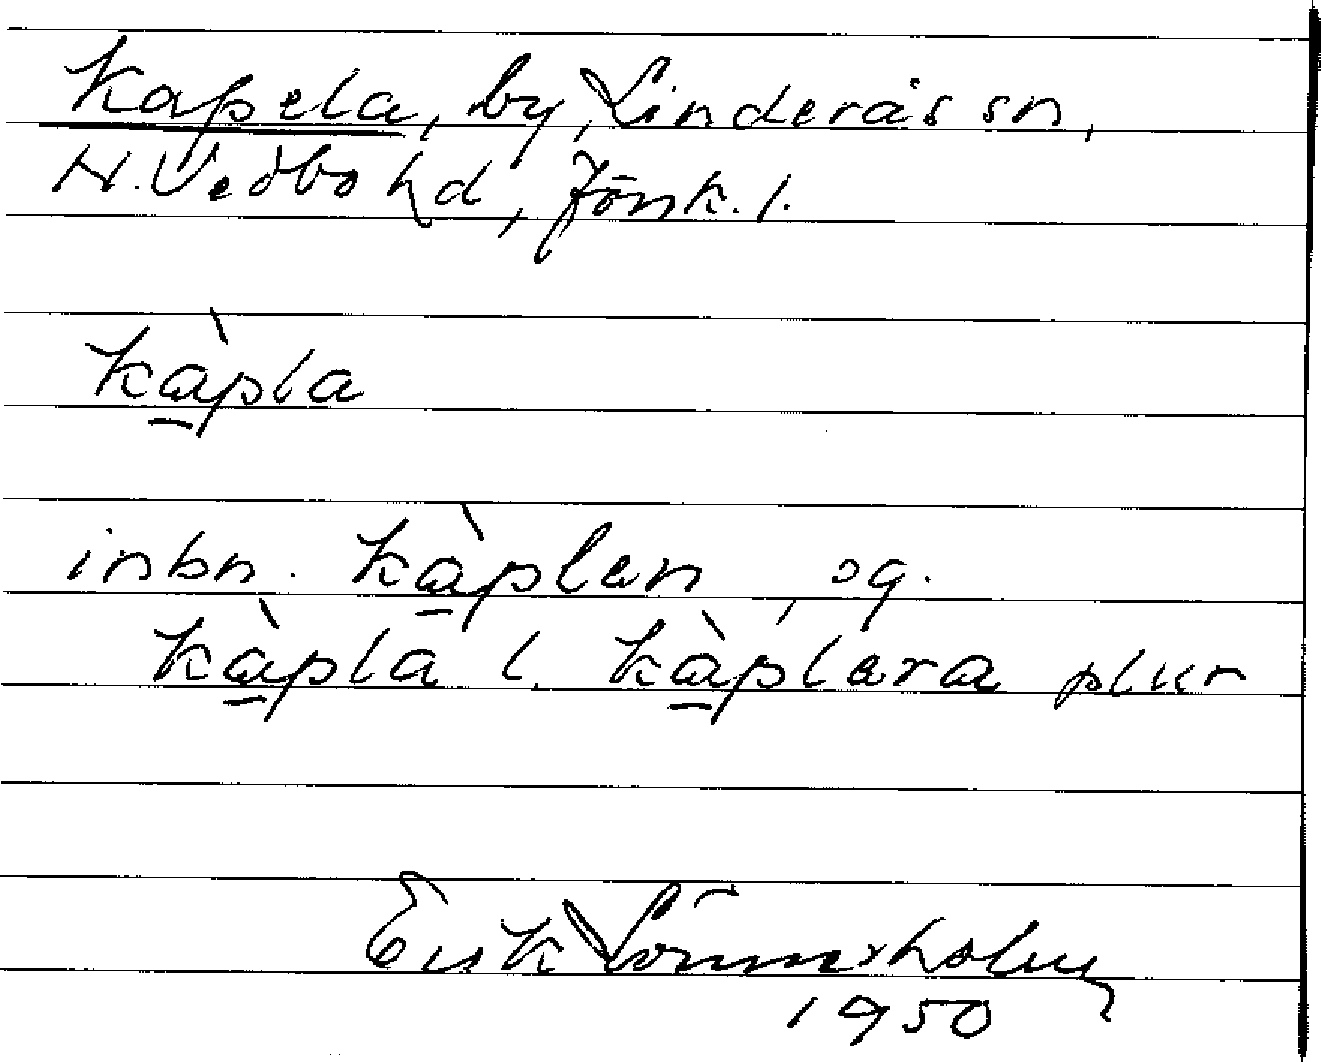 Kapela, by, Linderås sn,
N. Vedbo hd, Jönk. l.
kà̱pla
inbn. kà̱plan, og.
kà̱pla l. kà̱plara plur
Erik
1950